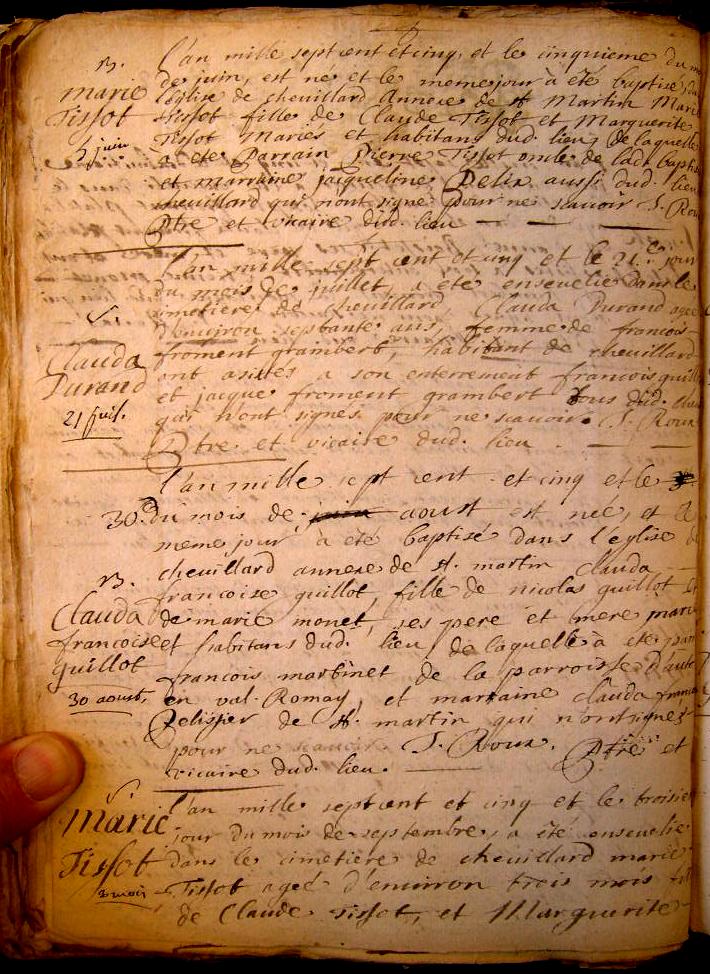 B.
Marie
Tissot
5 juin
L'an mille sept cent et cinq, et le cinquieme du
de juin, est né et le meme jour à été baptisé
l'église de chevillard annexe de st Martin Marie
Tissot fille de Claude Tissot et Marguerite
Tissot Mariés et habitans dud. lieu, de laquelle
à été Parrain Pierre Tissot oncle de lad. baptisé
et marraine jacqueline Pelix aussi dud. lieu
chevillard qui n'ont signé pour ne scavoir J. Roux
Ptre et vicaire dud. lieu
S.
Clauda
Durand
21 juil.
l'an mille sept cent et cinq et le 21.e jour
du mois de juillet, a été ensevelie dans le
cimetière de Chevillard, Clauda Durand agee
d'environ septante ans, femme de francois
froment grambert, habitant de chevillard
ont assistés a son enterrement francois guill
et jacque froment grambert tous dud.
qui n'ont signés pour ne scavoir. J. Roux
Ptre et vicaire dud. lieu
B.
Clauda
francoise
guillot
30 aoust,
l'an mille sept cent et cinq et le
30e du mois de juin aoust est neé, et le
meme jour à été baptisé dans l'église de
chevillard annexe de st. martin Clauda
francoise guillot, fille de nicolas guillot et
de marie monet, ses pere et mere marie
et habitans dud. lieu de laquelle à été
francois martinet de la parroisse
en val-Romay, et marraine Clauda
Pelissier de st. martin qui n'ont signes
pour ne scavoir J. Roux. Ptre et
vicaire dud. lieu.
S.
Marie
Tissot
3 mois
l'an mille sept cent et cinq et le troisie
jour du mois de septembre, a été ensevelie
dans le cimetiere de chevillard marie
Tissot ageé d'environ trois mois
de Claude Tissot, et Marguerite